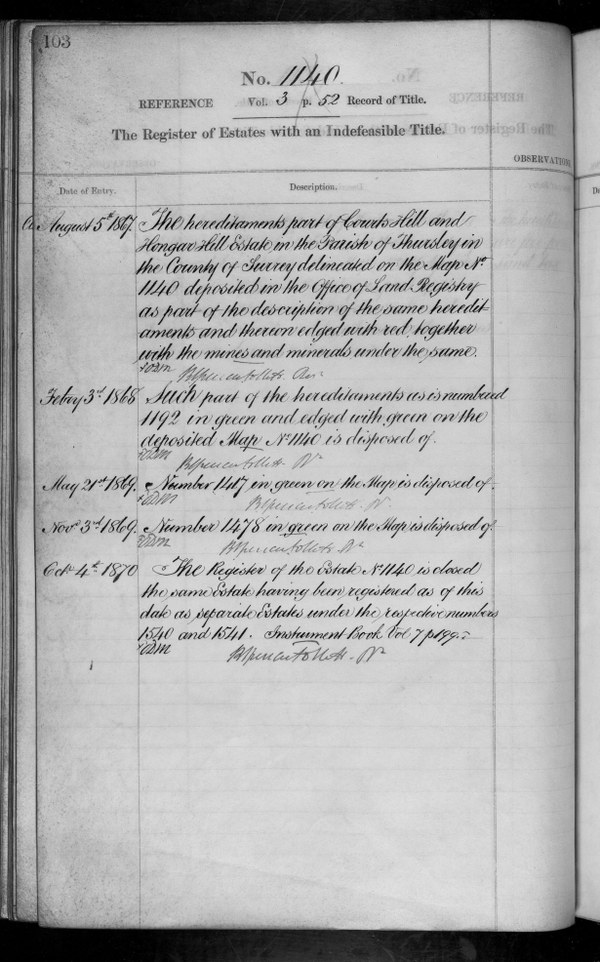 103
No. 1140.
REFERENCE Vol. 3 p. 52 Record of Title.
The Register of Estates with an Indefeasible Title.
OBSERVATIONS
Date of Entry. Description.
August 5th 1867. The hereditaments part of Courts Hill and
Hongar Hill Estate in the Parish of Thursley in
the County of Surrey delineated on the Map No
1140 deposited in the Office of Land Registry
as part of the description of the same heredit-
aments and thereon edged with red together
with the mines and minerals under the same.
Febry 3rd 1868 Such part of the hereditaments as is numbered
1192 in green and edged with green on the
deposited Map No 1140 is disposed of.
May 21st 1869. Number 1417 in green on the Map is disposed of.
Novr 3rd 1869. Number 1478 in green on the Map is disposed of.
Octr 4th 1870 The Register of the Estate No 1140 is closed
the same Estate having been registered as of this
date as separate Estates under the respective numbers
1540 and 1541. Instrument Book Vol 7 p 199.